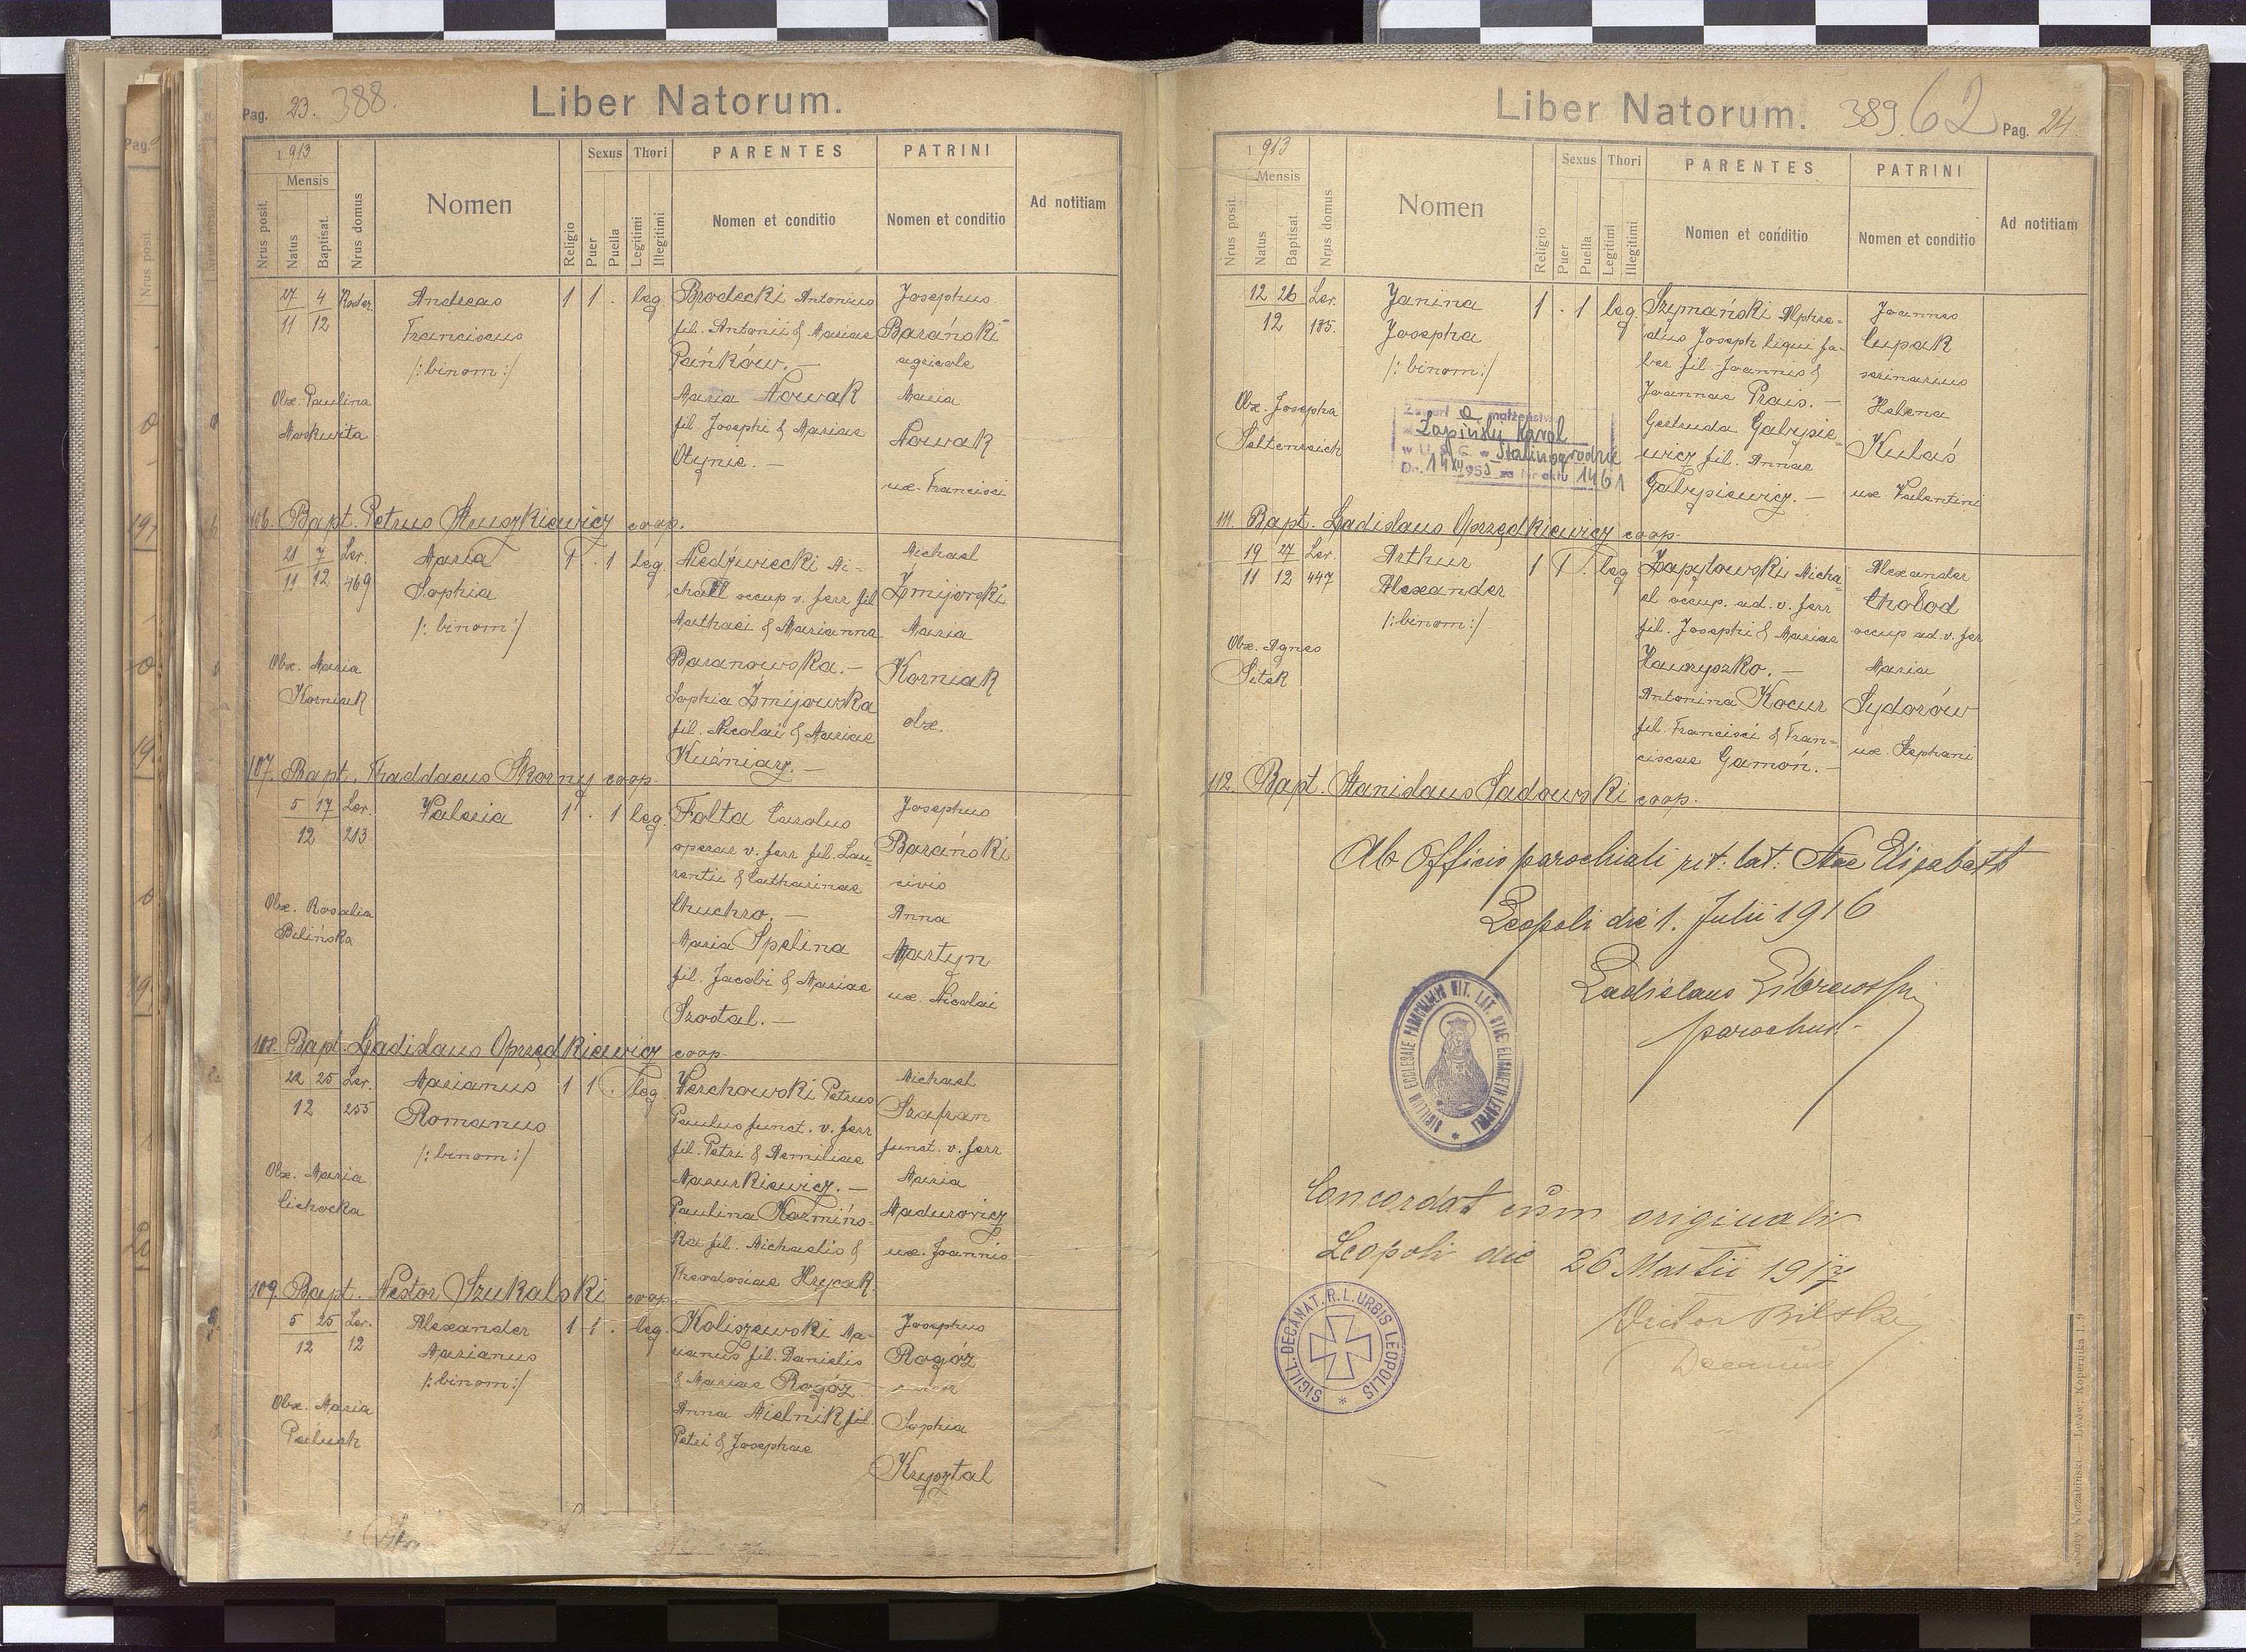 Pag. 23. 388.
Liber Natorum.
1913
Mensis
Nrus posit.
Natus
Baptisat.
Nrus domus
Nomen
Religio
Sexus
Puer
Puella
Thori
Legitimi
Illegitimi
PARENTES
Nomen et conditio
PATRINI
Nomen et conditio
Ad notitiam
27 4
11 12
Andreas
Franciscus
/:binom:/
1 1 . leg.
Obx. Paulina
Moskwita
Brodecki Antonius
fil. Antonii & Mariae
Pańków. —
Maria Nowak
fil. Josephi & Mariae
Otynie. —
Josephus
Barański
agricola
Maria
Nowak
ux. Francisci
106. Bapt. Petrus Struszkiewicz coop.
21 7 Ler.
11 12 469
Maria
Sophia
/:binom:/
1 . 1 leg.
Obx. Maria
Korniak
Niedźwiecki Mi-
chaël occup v. ferr fil
Mathaei & Marianna
Baranowska. —
Sophia Żmijowska
fil. Nicolai & Mariae
Kuśniarz. —
Michael
Żmijowski
Maria
Korniak
obx.
107. Bapt. Thaddaeus Skorny coop.
5 17 Ler.
12 213
Valeria
1 . 1 leg.
Obx. Rosalia
Bilińska
Folta Carolus
operar v. ferr fil. Lau-
rentii & Catharinae
Chuchro. —
Maria Spelina
fil. Jacobi & Mariae
Szostal. —
Josephus
Barański
civis
Anna
Martyn
ux. Nicolai
108. Bapt. Ladislaus Oprzędkiewicz coop.
22 25 Ler.
12 255
Marianus
Romanus
/:binom:/
1 1 . leg.
Obx. Maria
Cichocka
Werchowski Petrus
Paulus funct. v. ferr
fil. Petri & Aemiliae
Mazurkiewicz. —
Paulina Kozmińs-
ka fil. Michaelis &
Theodosiae Hrycak.
Michael
Szafran
funct. v. ferr
Maria
Madurowicz
ux. Joannis
109. Bapt. Nestor Szukalski coop.
5 25 Ler.
12 12
Alexander
Marianus
/:binom:/
1 1 . leg.
Obx. Maria
Paluch
Koliszewski Ma-
rianus fil. Danielis
& Mariae Rogóz
Anna Mielnik fil.
Petri & Josephae
Josephus
Rogóz
Sophia
Krysztal
Liber Natorum.
389. 62 Pag. 24
1913
Mensis
Nrus posit.
Natus
Baptisat.
Nrus domus
Nomen
Religio
Sexus
Puer
Puella
Thori
Legitimi
Illegitimi
PARENTES
Nomen et conditio
PATRINI
Nomen et conditio
Ad notitiam
12 26 Ler.
12 185.
Janina
Josepha
/:binom:/
1 . 1 leg.
Obx. Josepha
Seltenreich
Zawarł a małżeństwo
Łapiński Karol
w U. S. C. w Stalinogrodzie
Dn. 14 XII 1953 za Nr aktu 1461
Szymański Alphre-
dus Joseph ligni fa-
ber fil. Joannis &
Joannae Prais. —
Gertruda Gabrysie-
wicz fil. Annae
Gabrysiewicz. —
Joannes
Cupak
scriniarius
Helena
Kulaś
ux Valentini
111. Bapt. Ladislaus Oprzędkiewicz coop.
19 27 Ler.
11 12 447
Arthur
Alexander
/:binom:/
1 1 . leg
Obx. Agnes
Sitek
Zapytowski Micha-
el occup. ad. v. ferr
fil. Josephi & Mariae
Hawryszko. —
Antonina Kocur
fil. Francisci & Fran-
ciscae Gamoń. —
Alexander
Chołod
occup ad. v. ferr
Maria
Sydorów
ux. Stephani
112. Bapt. Stanislaus Sadowski coop.
Ab Officio parochiali rit. lat. Stae Elisabeth
Leopoli die 1. Julii 1916
Ladislaus Librewski
parochus.
SIGILLUM ECCLESIAE PAROCHIALIS RIT. LAT. STAE ELISABETH LEOPOLI
Concordat cum originali
Leopoli die 26 Martii 1917
Victor Bilski
Decanus
SIGILL. DECANAT. R. L. URBIS LEOPOLIS
Kuczabiński — Lwów, Kopernika l. 9